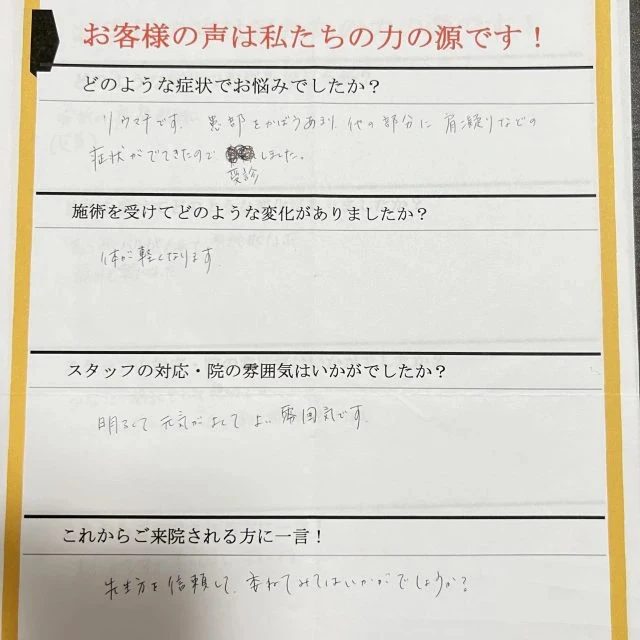 お客様の声は私たちの力の源です！
どのような症状でお悩みでしたか？
リウマチです。患部をかばうあまり他の部分に肩凝りなどの
症状がでてきたので しました。
受診
施術を受けてどのような変化がありましたか？
体が軽くなります。
スタッフの対応・院の雰囲気はいかがでしたか？
明るくて元気がよくてよい雰囲気です。
これからご来院される方に一言！
先生方を信頼して、委ねてみてはいかがでしょうか？